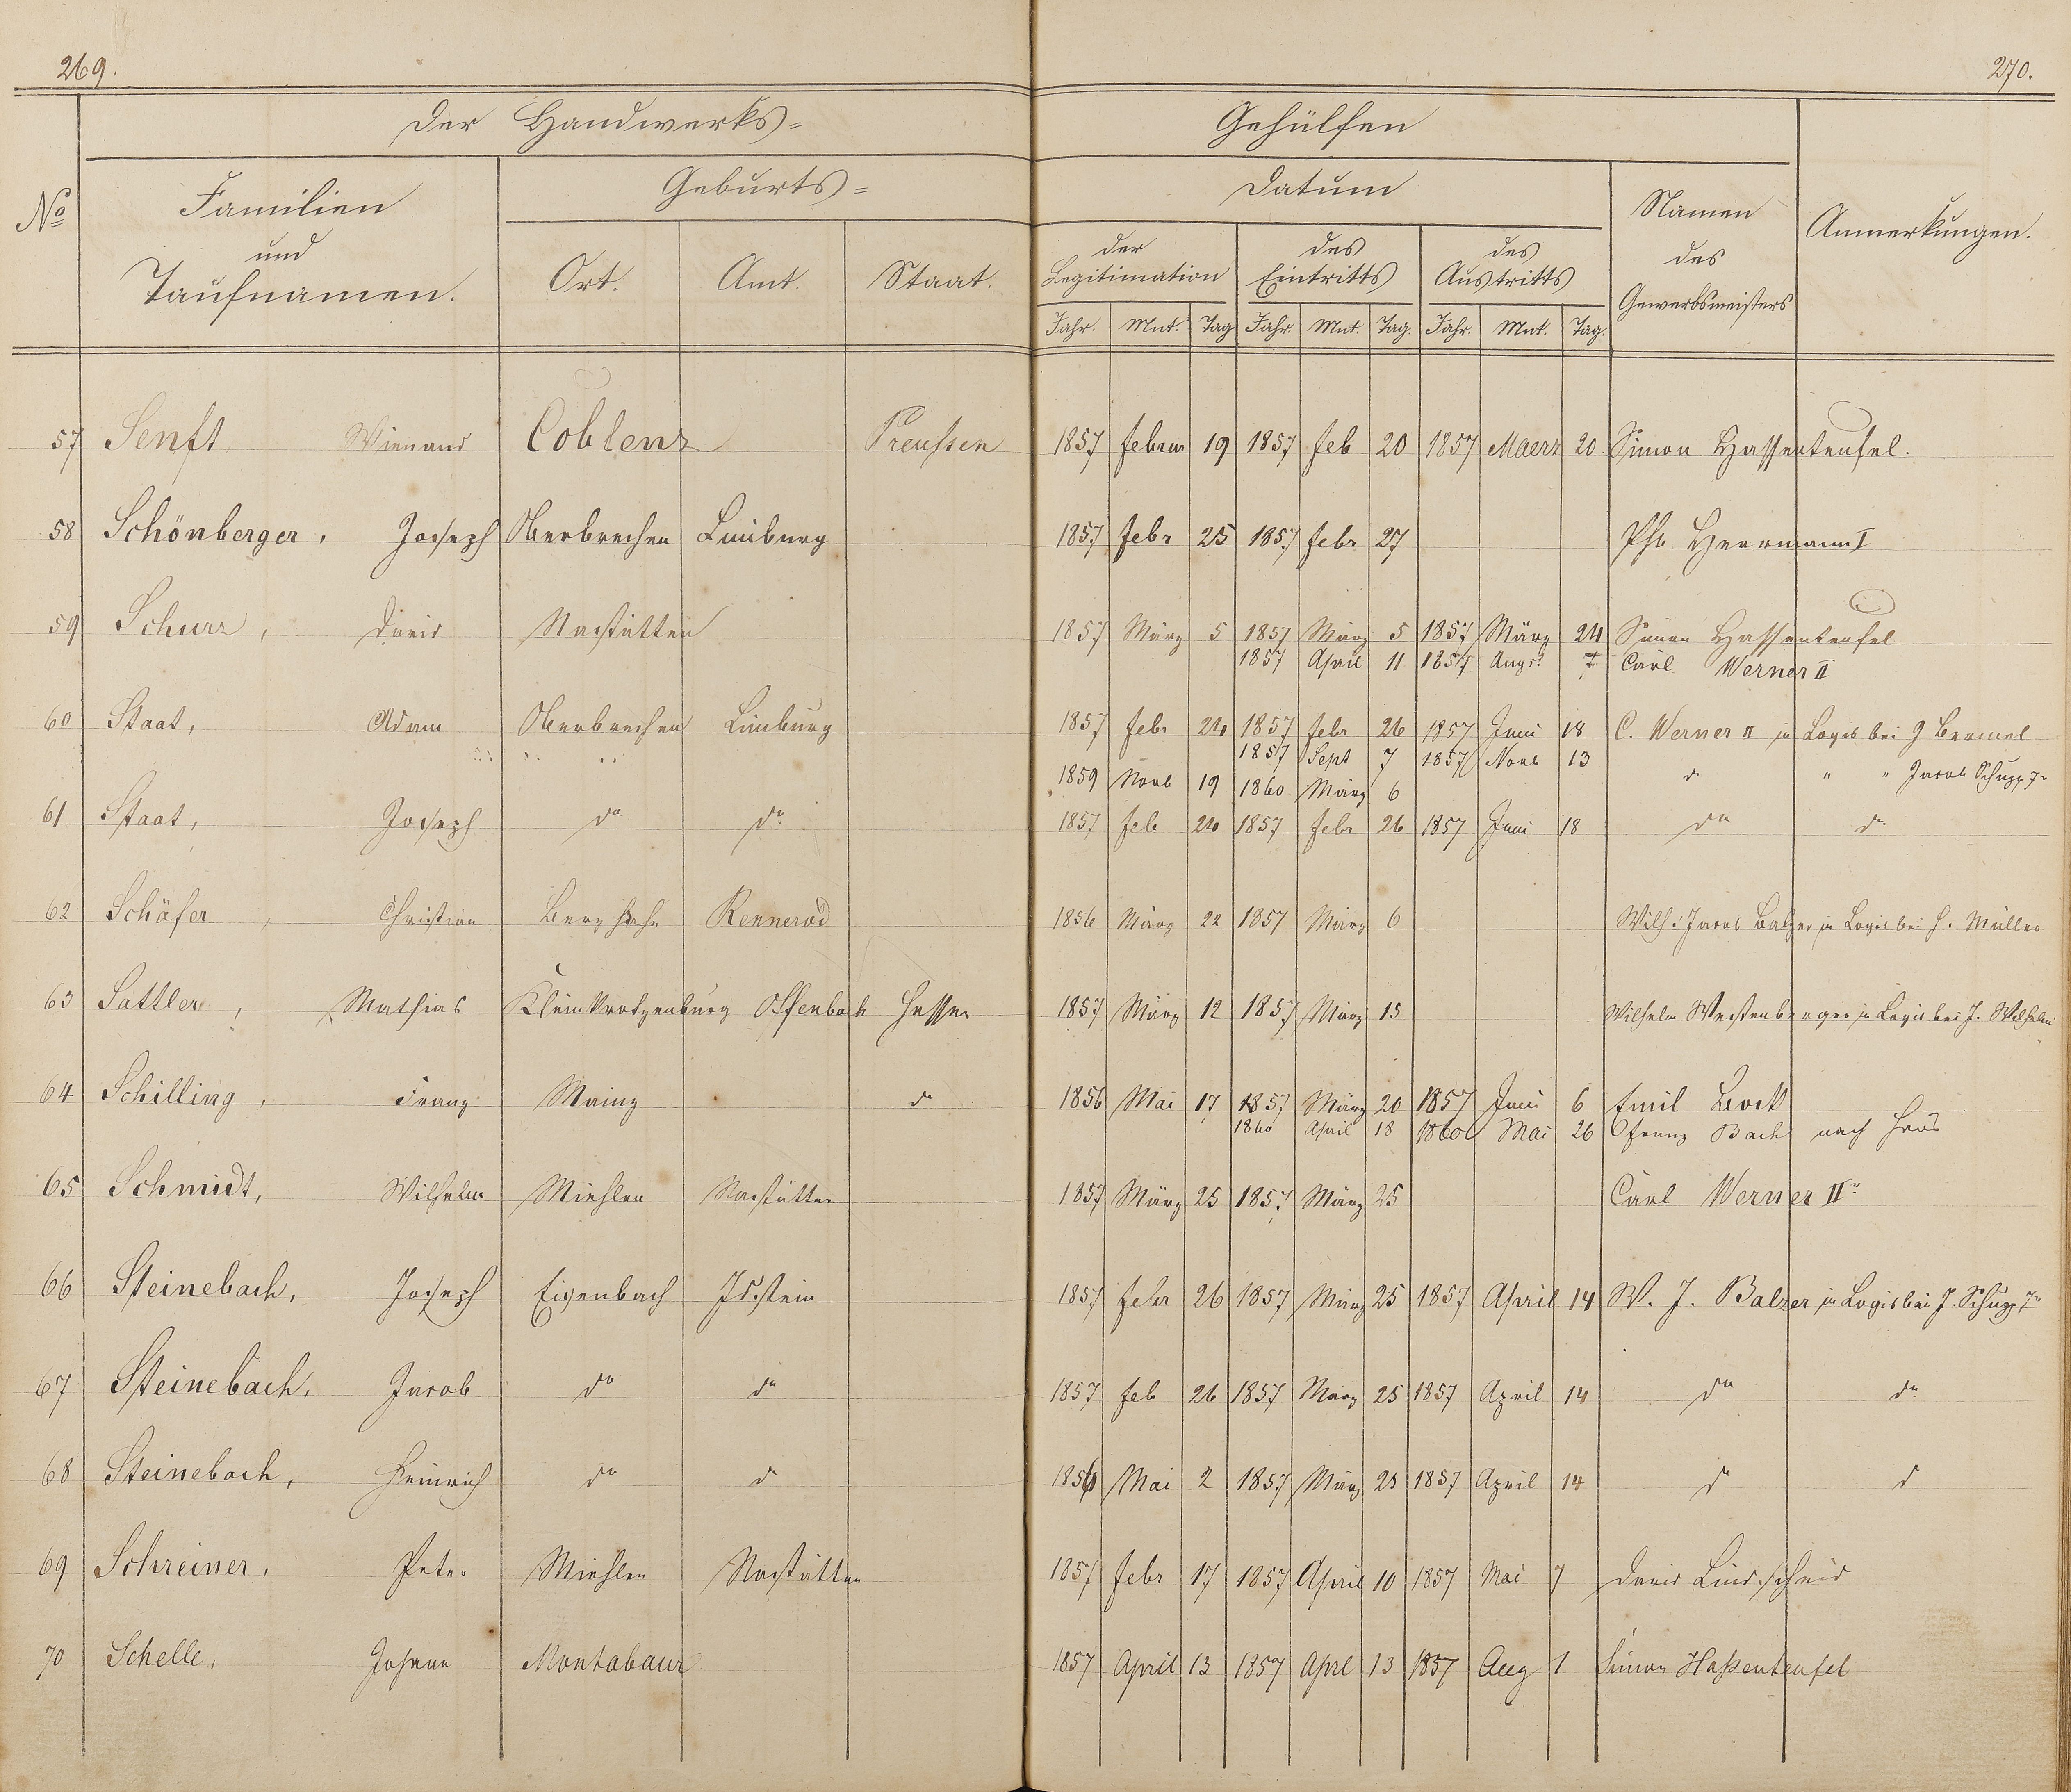 269.
270.
Der Handwerks= Gehülfen
No Familien und Taufnamen. Geburts= Datum Namen des Gewerbsmeisters Anmerkungen.
Ort. Amt. Staat. der Legitimation des Eintritts des Austritts
Jahr. Mnt. Tag Jahr. Mnt. Tag. Jahr. Mnt. Tag.
57 Senft Wienand Coblenz Preussen 1857 febru 19 1857 feb 20 1857 Maerz 20 Simon Hassenteufel.
58 Schönberger, Joseph Oberbrechen Limburg 1857 febr 25 1857 febr 27 Ph Herrmann I
59 Schurz, David Nastätten 1857 März 5 1857 März 5 1857 März 24 Simon Hassenteufel
1857 April 11 1857 Augst 7 Carl Werner II
60 Staat, Adam Oberbrechen Limburg 1857 febr 24 1857 febr 26 1857 Juni 18 C. Werner II in Logis bei J Bermel
1857 Sept 7 1857 Novb 13
1859 Novb 19 1860 März 6 do " " Jacob Schupp 7r
61 Staat, Joseph do do 1857 feb 24 1857 febr 26 1857 Juni 18 do do
62 Schäfer, Christian Berzhahn Rennerod 1856 März 22 1857 März 6 Wilh. Jacob Balzer in Logis bei H. Müller
63 Sattler, Mathias Kleinkrotzenburg Offenbach Hessen 1857 März 12 1857 März 15 Wilhelm Westenberger in Logis bei J. Wilhelmi
64 Schilling, Franz Mainz do 1856 Mai 17 1857 März 20 1857 Juni 6 Emil Bock
1860 April 18 1860 Mai 26 Franz Bach nach Haus
65 Schmidt, Wilhelm Miehlen Nastätten 1857 März 25 1857 März 25 Carl Werner IIr
66 Steinebach, Joseph Eigenbach Idstein 1857 febr 26 1857 März 25 1857 April 14 W. J. Balzer in Logis bei J. Schupp 7r
67 Steinebach, Jacob do do 1857 feb 26 1857 März 25 1857 April 14 do do
68 Steinebach, Heinrich do do 1856 Mai 2 1857 März 25 1857 April 14 do do
69 Schreiner, Peter Miehlen Nastätten 1857 febr 17 1857 April 10 1857 Mai 7 David Lindscheid
70 Schelle, Johann Montabaur 1857 April 13 1857 Aprl 13 1857 Aug 1 Simon Hassenteufel